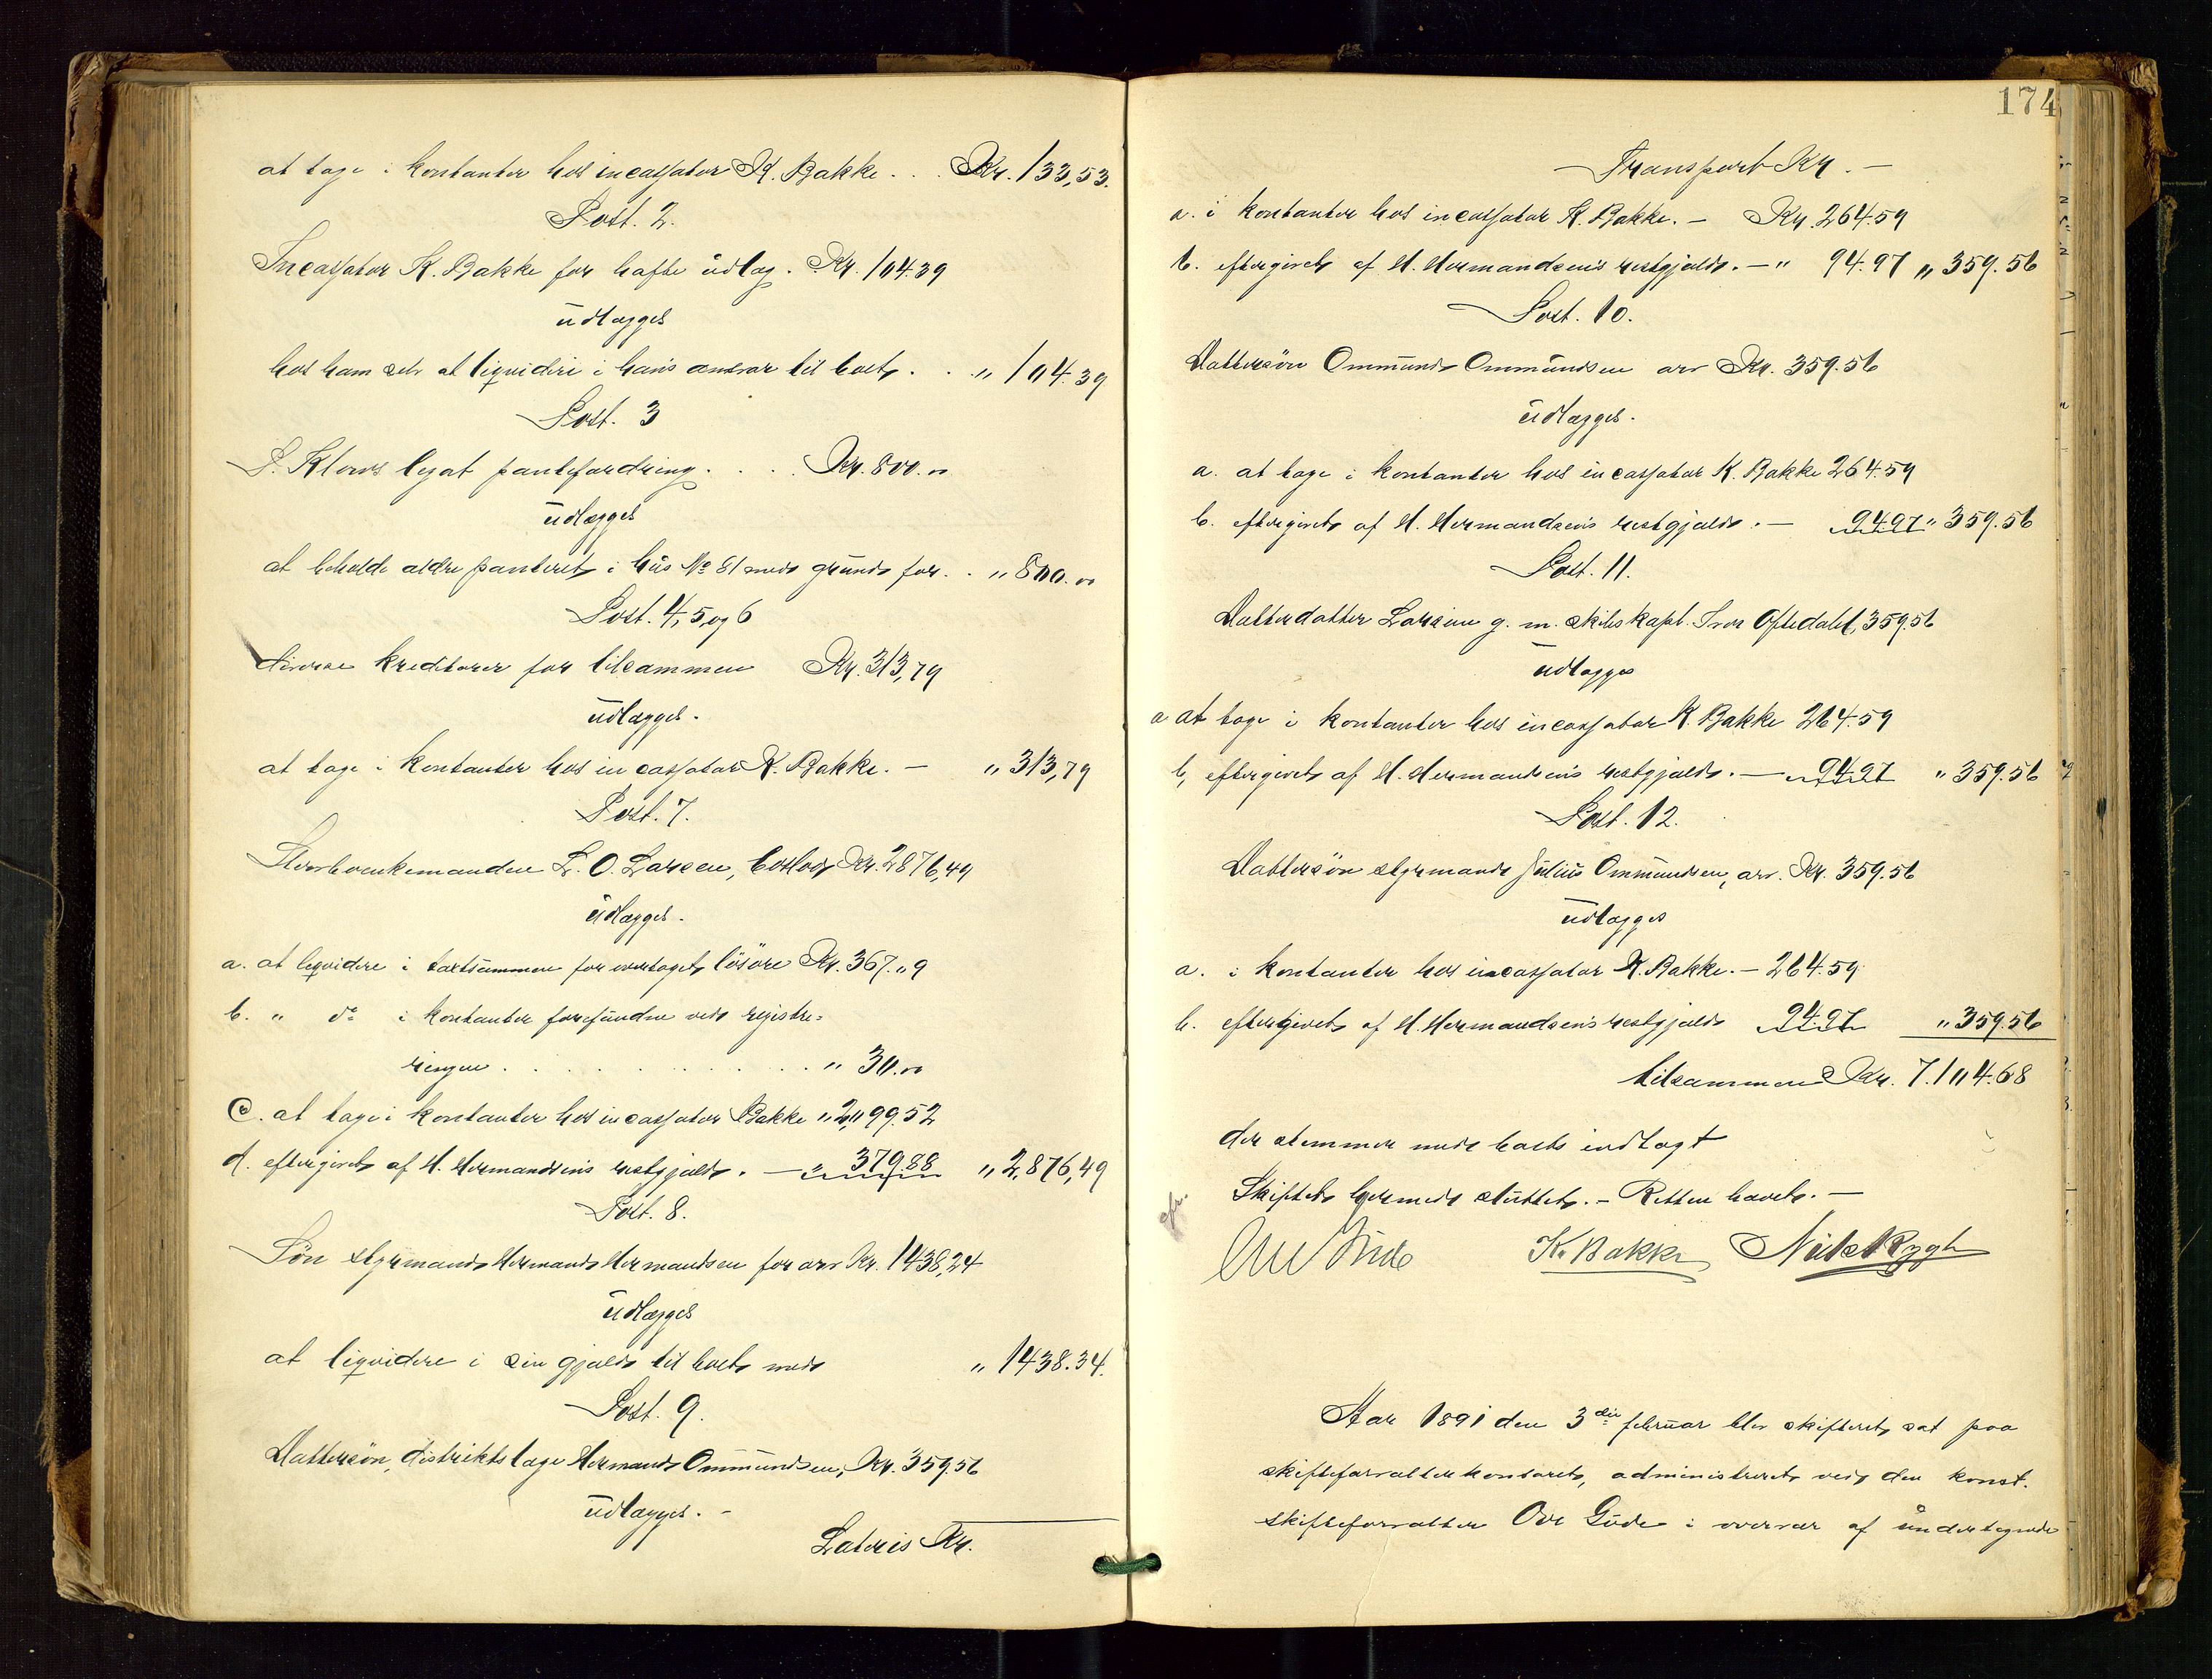 at tage i kontanter hos incassator K. Bakke . . . Kr. 133,53.
Post. 2.
Incassator K. Bakke for hafte udlæg. Kr. 104.39
udlægges
hos ham selv at liqvidere i hans ansvar til boet. . . „ 104.39
Post. 3
P. Klows legat pantefordring . . . . Kr. 800.00
udlægges
at beholde ældre panteret i hus No 81 med grund for. . „ 800.00
Post. 4, 5, og 6
diverse kreditorer for tilsammen Kr. 313,79
udlægges.
at tage i kontanter hos incassator K. Bakke. — „ 313,79
Post. 7.
Stervboenkemanden L. O. Larsen, boslod Kr. 2876,49
udlægges.
a. at liqvidere i taxtsummen for overtaget løsøre Kr. 367.„9
b. „ do i kontanter forefundne ved registre=
ringen . . . . . . . . . . . . „ 30.00
c. at tage i kontanter hos incassator Bakke „ 2,„99.52
d. eftergivet af H. Hermandsens restgjæld. — „ 379.88 „ 2,876,49
Post. 8.
Søn styrmand Hermand Hermandsen for arv Kr. 1438,24
udlægges
at liqvidere i sin gjæld til boet med „ 1438.34.
Post. 9.
Dattersøn, distriktslæge Hermand Ommundsen, Kr. 359.56
udlægges. -
Lateris Kr.
174
Transport Kr. —
a. i kontanter hos incassator K. Bakke. — Kr. 264.59
b. eftergivet af H. Hermandsens restgjæld. — „ 94.97 „ 359.56
Post. 10.
Dattersøn Ommund Ommundsen arv Kr. 359.56
udlægges.
a. at tage i kontanter hos incassator K. Bakke 264.59
b. eftergivet af H. Hermandsens restgjæld. — 94.97 „ 359.56
Post. 11.
Datterdatter Larsine g. m. skibskapt. Iver Oftedahl, 359.56
udlægges
a at tage i kontanter hos incassator K. Bakke 264.59
b, eftergivet af H. Hermandsens restgjæld. — 94.97 „ 359.56
Post. 12.
Dattersøn styrmand Julius Ommundsen, arv. Kr. 359.56
udlægges
a. i kontanter hos incassator K. Bakke. — 264.59
b. eftergivet af H. Hermandsens restgjæld 94.97 „ 359.56
tilsammen Kr. 7.104.68
der stemmer med boets indtægt
Skiftet hermed sluttet. — Retten hævet. —
Ove Gude K. Bakke Niels Rygh
Aar 1891 den 3die februar blev skifteret sat paa
skifteforvalterkontoret, administreret ved den konst.
skifteforvalter Ove Gude i overvær af undertegnede